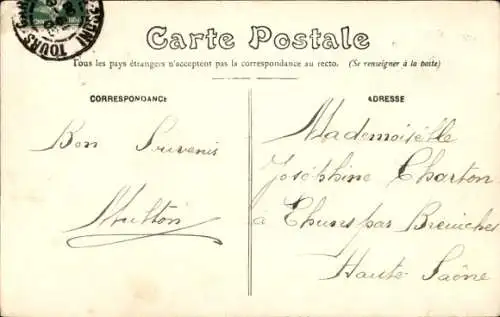 TOURS-G
Carte Postale
Tous les pays étrangers n'acceptent pas la correspondance au recto. (Se renseigner à la poste)
CORRESPONDANCE
Bon Souvenir
ADRESSE
Mademoiselle
Joséphine Charton
à par
Haute-Saône